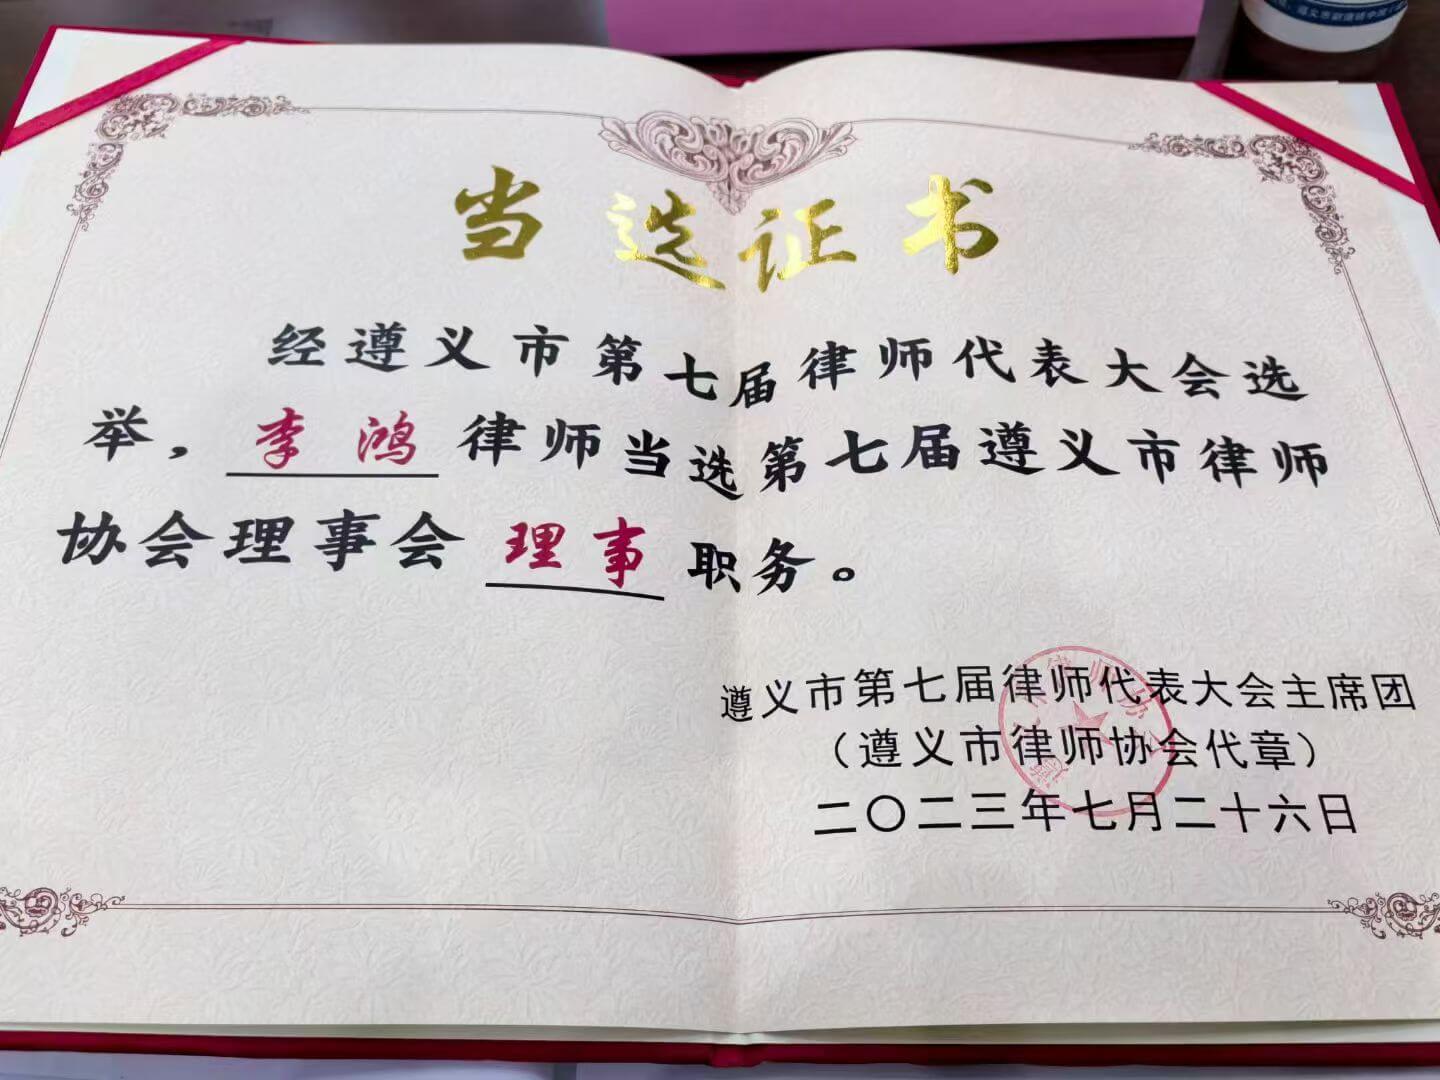 当选证书
经遵义市第七届律师代表大会选
举，李鸿律师当选第七届遵义市律师
协会理事会理事职务。
遵义市第七届律师代表大会主席团
（遵义市律师协会代章）
二〇二三年七月二十六日